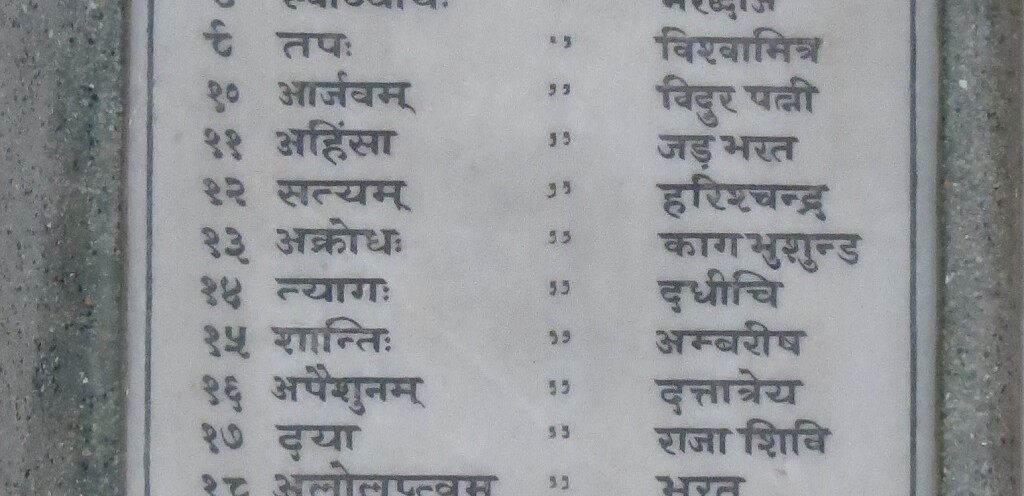 ८ स्वाध्यायः भरद्वाज
९ तपः ,, विश्वामित्र
१० आर्जवम् ,, विदुर पत्नी
११ अहिंसा ,, जड़ भरत
१२ सत्यम् ,, हरिश्चन्द्र
१३ अक्रोधः ,, काग भुशुन्ड
१४ त्यागः ,, दधीचि
१५ शान्तिः ,, अम्बरीष
१६ अपैशुनम् ,, दत्तात्रेय
१७ दया ,, राजा शिवि
१८ अलोलुप्त्वम् ,, भरत